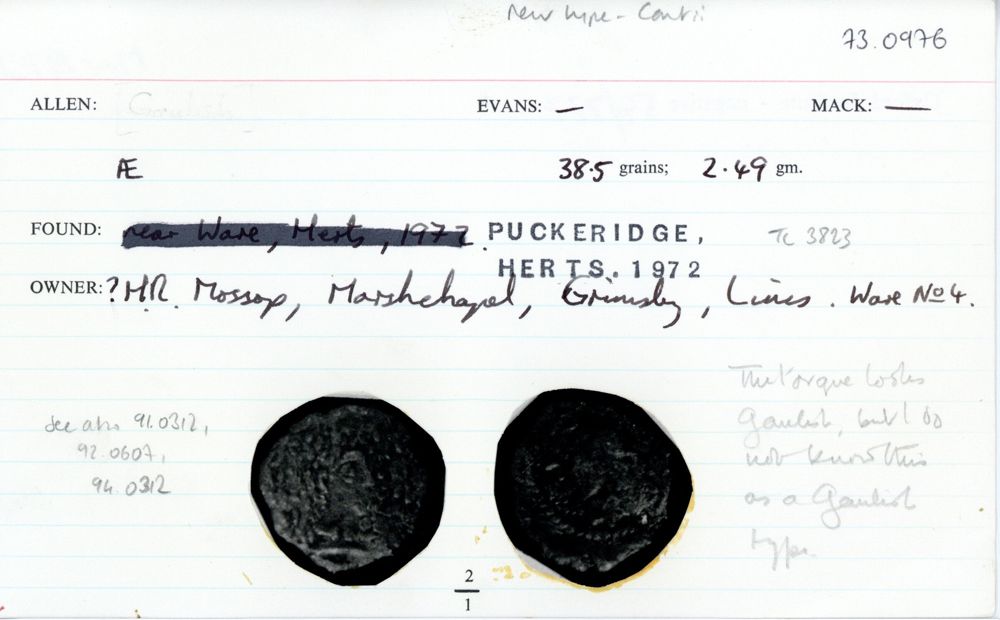 New type - Cantii
73.0976
ALLEN: [Gaulish] EVANS: — MACK: —
Æ 38.5 grains; 2.49 gm.
FOUND: near Ware, Herts, 1972. PUCKERIDGE, TC 3823
HERTS. 1972
OWNER: ? H.R. Mossop, Marshchapel, Grimsby, Lincs. Ware No 4.
The torque looks
Gaulish, but I do
not know this
as a Gaulish
type.
see also 91.0312,
92.0607,
94.0312
2
1